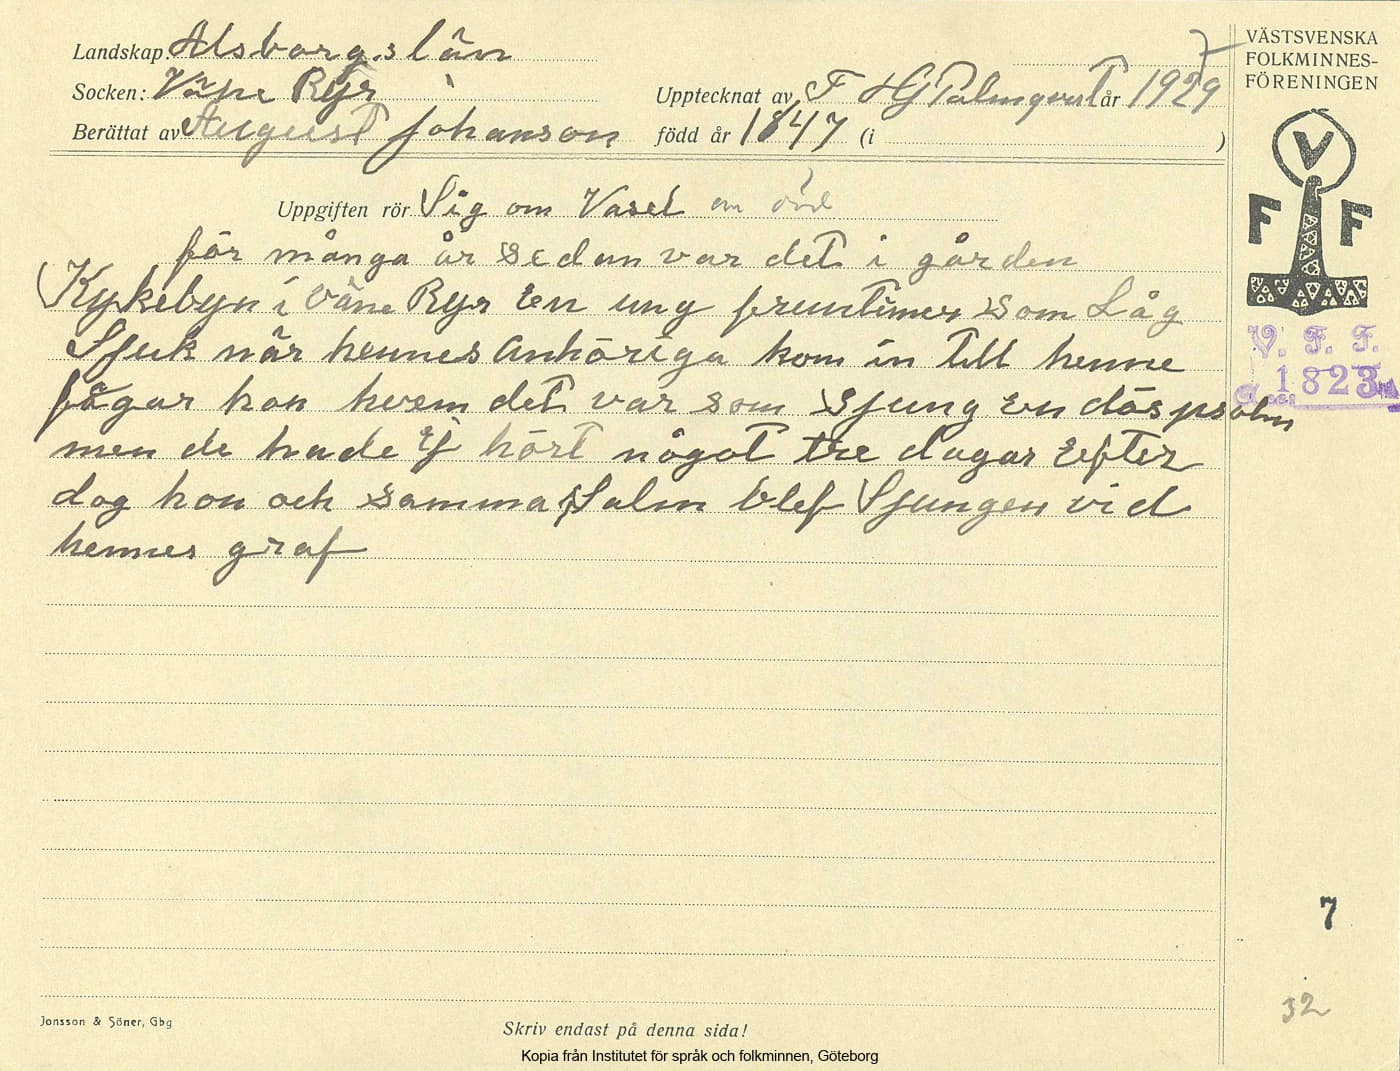 Landskap: Alsborgs län
Socken: Väne Ryr
Upptecknat av F HG Palmqvist år 1929
Berättat av August Johanson född år 1847 (i )
Uppgiften rör Sig om Varsel om död
för många år sedan var det i gården
Kykebyn i Väne Ryr En ung fruntimer som Låg
Sjuk när hennes anhöriga kom in till henne
frågar hon hvem det var som sjung en döspsalm
men de hade Ej hört något tre dagar Efter
dog hon och samma psalm blef Sjungen vid
hennes graf
7
VÄSTSVENSKA
FOLKMINNES-
FÖRENINGEN
V
F F
V. F. F.
Acc. 1823
7
32
Jonsson & Söner, Gbg
Skriv endast på denna sida!
Kopia från Institutet för språk och folkminnen, Göteborg